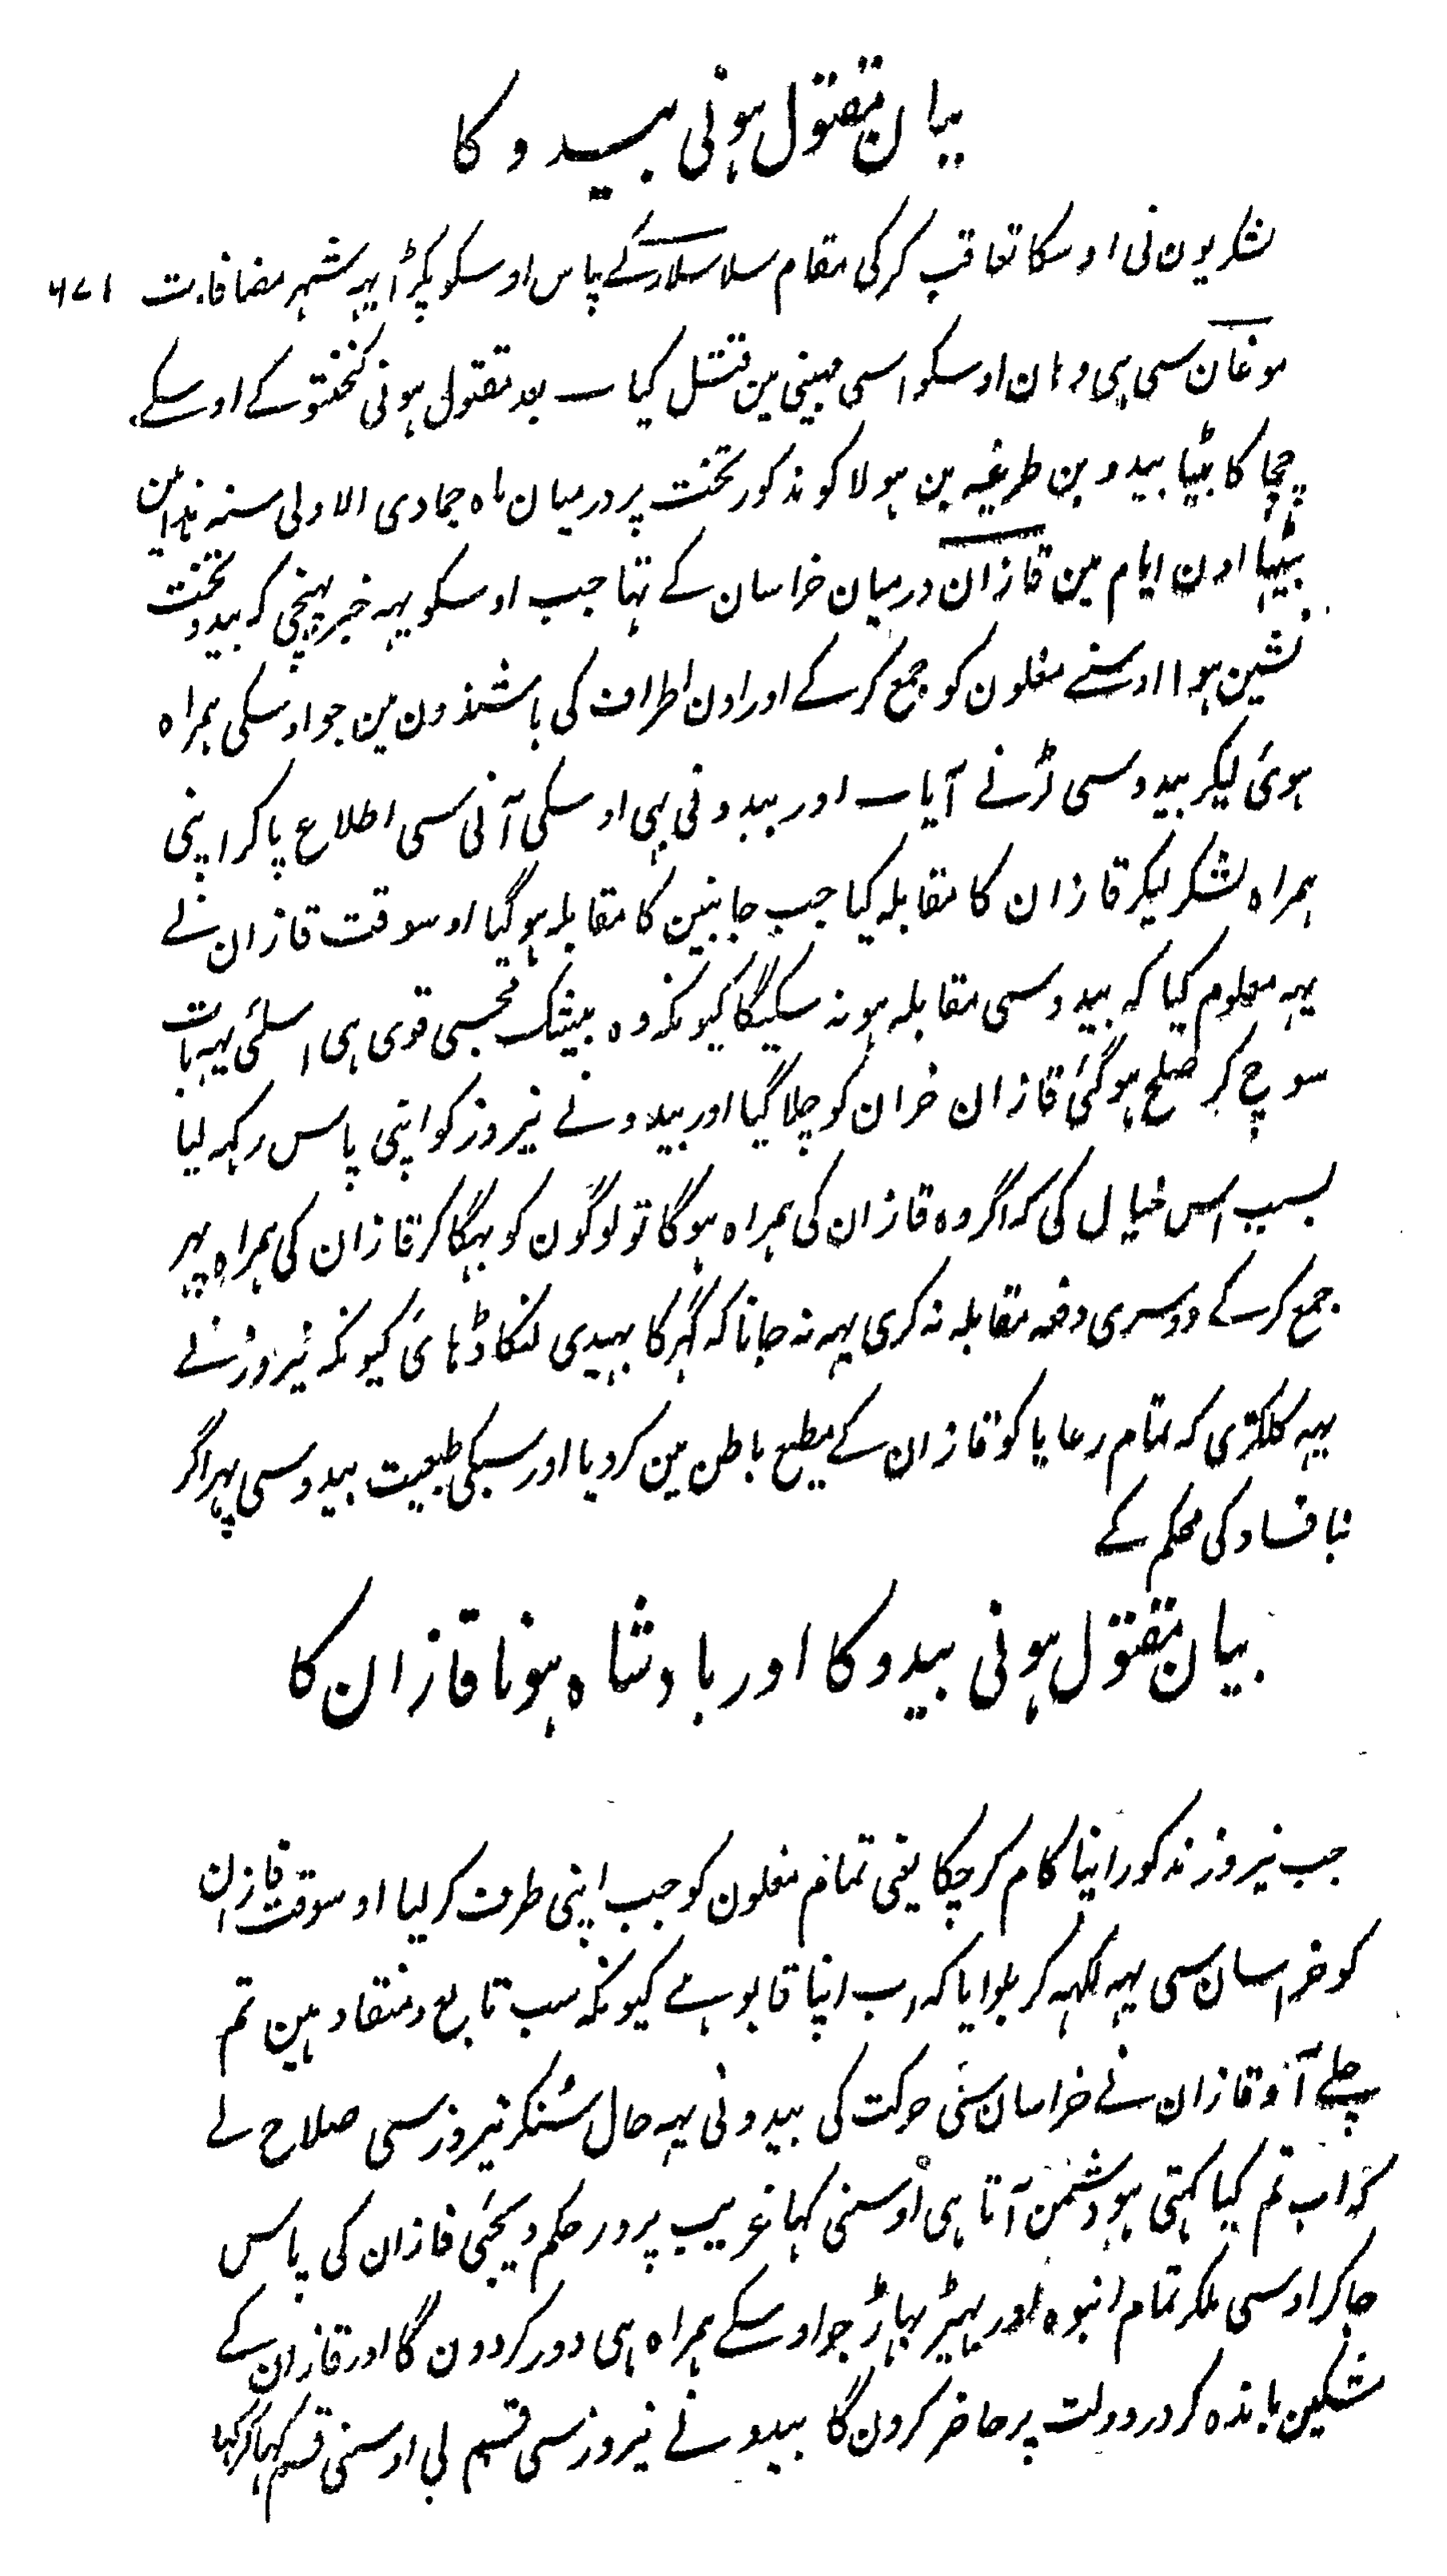 بیان مقتول ہونی بیدو کا
لشکریون نی اوسکا تعاقب کرکی مقام سلاسلار کے پاس اوسکو پکڑا یہہ شہر مضافات ۶۷۱
موغان سی ہی وہان اوسکو اسی مہینی مین قتل کیا ــ بعد مقتول ہونی کنختو کے اوسکے
چچا کا بیٹا بیدو بن طرغیہ بن ہولاکو مذکور تخت پر درمیان ماہ جمادی الاولی سنہ ہذا مین
بیٹہا اون ایام مین قازان درمیان خراسان کے تہا جب اوسکو یہہ خبر پہنچی کہ بیدو تخت
نشین ہوا اوسنے مغلون کو جمع کرکے اور اون اطراف کی باشندون مین جو اوسکی ہمراہ
ہوئ لیکر بیدوسی لڑنے آیا ــ اور بیدونی بہی اوسکی آنی سی اطلاع پاکر اپنی
ہمراہ لشکر لیکر قازان کا مقابلہ کیا جب جانبین کا مقابلہ ہوگیا اوسوقت قازان نے
یہہ معلوم کیا کہ بیدوسی مقابلہ ہو نہ سکیگا کیونکہ وہ بیشک مجسی قوی ہی اسلئ یہہ بات
سوچ کر صلح ہوگئ قازان خران کو چلا گیا اور بیدو نے نیروز کو اپنی پاس رکہہ لیا
بسبب اس خیال کی کہ اگر وہ قازان کی ہمراہ ہوگا تو لوگون کو بہگا کر قازان کی ہمراہ پہر
جمع کرکے دوسری دفعہ مقابلہ نہ کری یہہ نہ جانا کہ گہر کا بہیدی لنکا ڈہائ کیونکہ نیروز نے
یہہ کلکتری کہ تمام رعایا کو قازان کے مطیع باطن مین کردیا اور سبکی طبیعت بیدوسی پہراگر
بنا فساد کی محکم کے
بیان مقتول ہونی بیدو کا اور بادشاہ ہونا قازان کا
جب نیروز مذکور اپنا کام کرچکا یعنی تمام مغلون کو جب اپنی طرف کرلیا اوسوقت قازان
کو خراسان سی یہہ لکہہ کر بلوایا کہ اب اپنا قابو ہے کیونکہ سب تابع ومنقاد ہین تم
چلے آؤ قازان نے خراسان سی حرکت کی بیدونی یہہ حال سُنکر نیروز سی صلاح لے
کہ اب تم کیا کہتی ہو دشمن آتا ہی اوسنی کہا غریب پرور حکم دیجئی قازان کی پاس
جاکر اوسی ملکر تمام انبوہ اور بہیڑ بہاڑ جو اوسکے ہمراہ ہی دور کردون گا اور قازان کے
مشکین باندہ کر در دولت پر حاضر کرون گا بیدو نے نیروز سی قسم لی اوسنی قسم کہاکر کہا